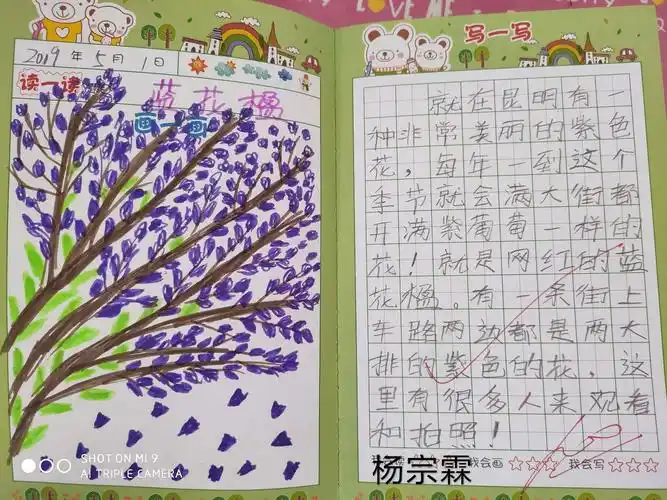 LOVE ME
2019年5月1日
读一读
蓝花楹
画一画
写一写
就在昆明有一
种非常美丽的紫色
花，每年一到这个
季节就会满大街都
开满紫葡萄一样的
花！就是网红的蓝
花楹。有一条街上
车路两边都是两大
排的紫色的花，这
里有很多人来观看
和拍照！
我会画
我会写
杨宗霖
SHOT ON MI 9
AI TRIPLE CAMERA